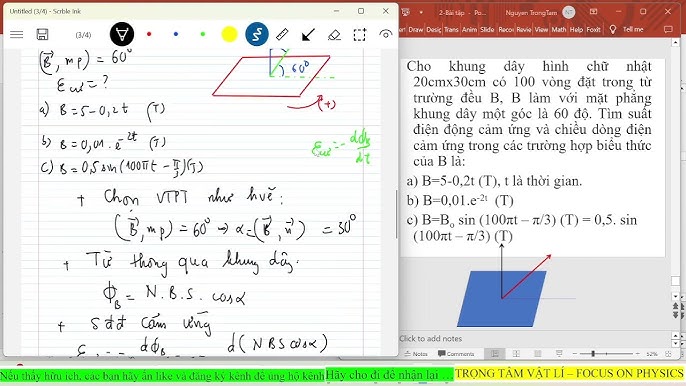 Untitled (3/4) - Scrble Ink
(3/4)
(B, mp) = 60⁰
Ecư = ?
a) B = 5 - 0,2t (T)
b) B = 0,01. e^-2t (T)
c) B = 0,5 sin(100πt - π/3)(T)
60⁰
(+)
Ecư = - dϕB/dt
+ Chọn VTPT như hvẽ:
(B, mp) = 60⁰ → α = (B, n) = 30⁰
+ Từ thông qua khung dây:
ϕB = N.B.S. cosα
+ Sđđ cảm ứng
dϕB d(NBS cosα)
2-Bài tập - Po... Nguyen TrongTam NT
Draw Desig Transi Anim Slide Recor Review View
Cho khung dây hình chữ nhật
20cmx30cm có 100 vòng đặt trong từ
trường đều B, B làm với mặt phẳng
khung dây một góc là 60 độ. Tìm suất
điện động cảm ứng và chiều dòng điện
cảm ứng trong các trường hợp biểu thức
của B là:
a) B=5-0,2t (T), t là thời gian.
b) B=0,01.e-2t (T)
c) B=Bo sin (100πt – π/3) (T) = 0,5. sin
(100πt – π/3) (T)
Click to add notes
Notes
52%
Nếu thấy hữu ích, các bạn hãy ấn like và đăng ký kênh để ủng hộ kênh Hãy cho đi để nhận lại ... TRỌNG TÂM VẬT LÍ – FOCUS ON PHYSICS